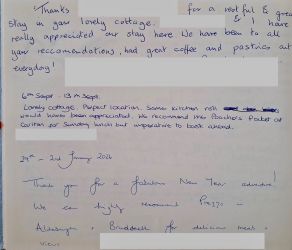 Thanks for a restful & great
stay in your lovely cottage. & I have
really appreciated our stay here. We have been to all
your reccomendations, had great coffee and pastries at
everyday!
6th Sept - 13th Sept.
Lovely cottage. Perfect location. Some kitchen roll
would have been appreciated. We recommend the Poacher's Pocket at
for Sunday lunch but imperative to book ahead.
- 2nd January 2024
Thank you for a fabulous New Year adventure!
We can highly recommend Prezzo -
& for delicious meals
views